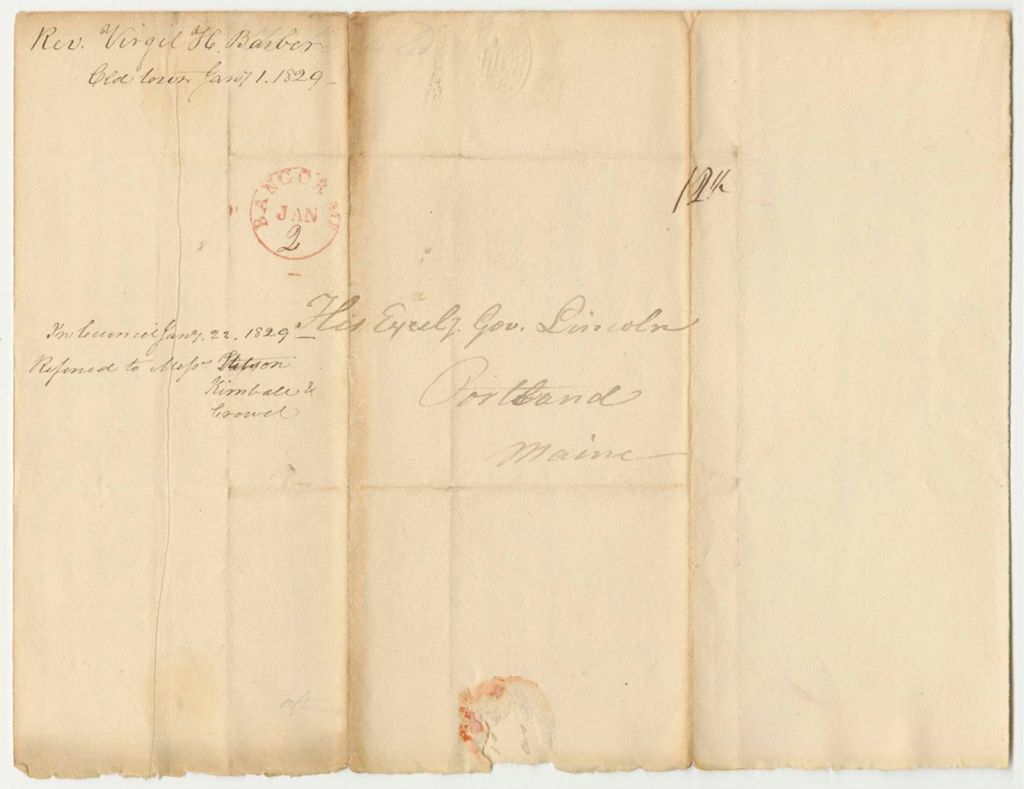 Rev. Virgil H. Barber
Old town Jany 1. 1829
BANGOR
JAN
2
12½
His Excely. Gov. Lincoln
Portland
Maine
In Council Jany. 22. 1829
Referred to Messrs Stetson
Kimball &
Crowel